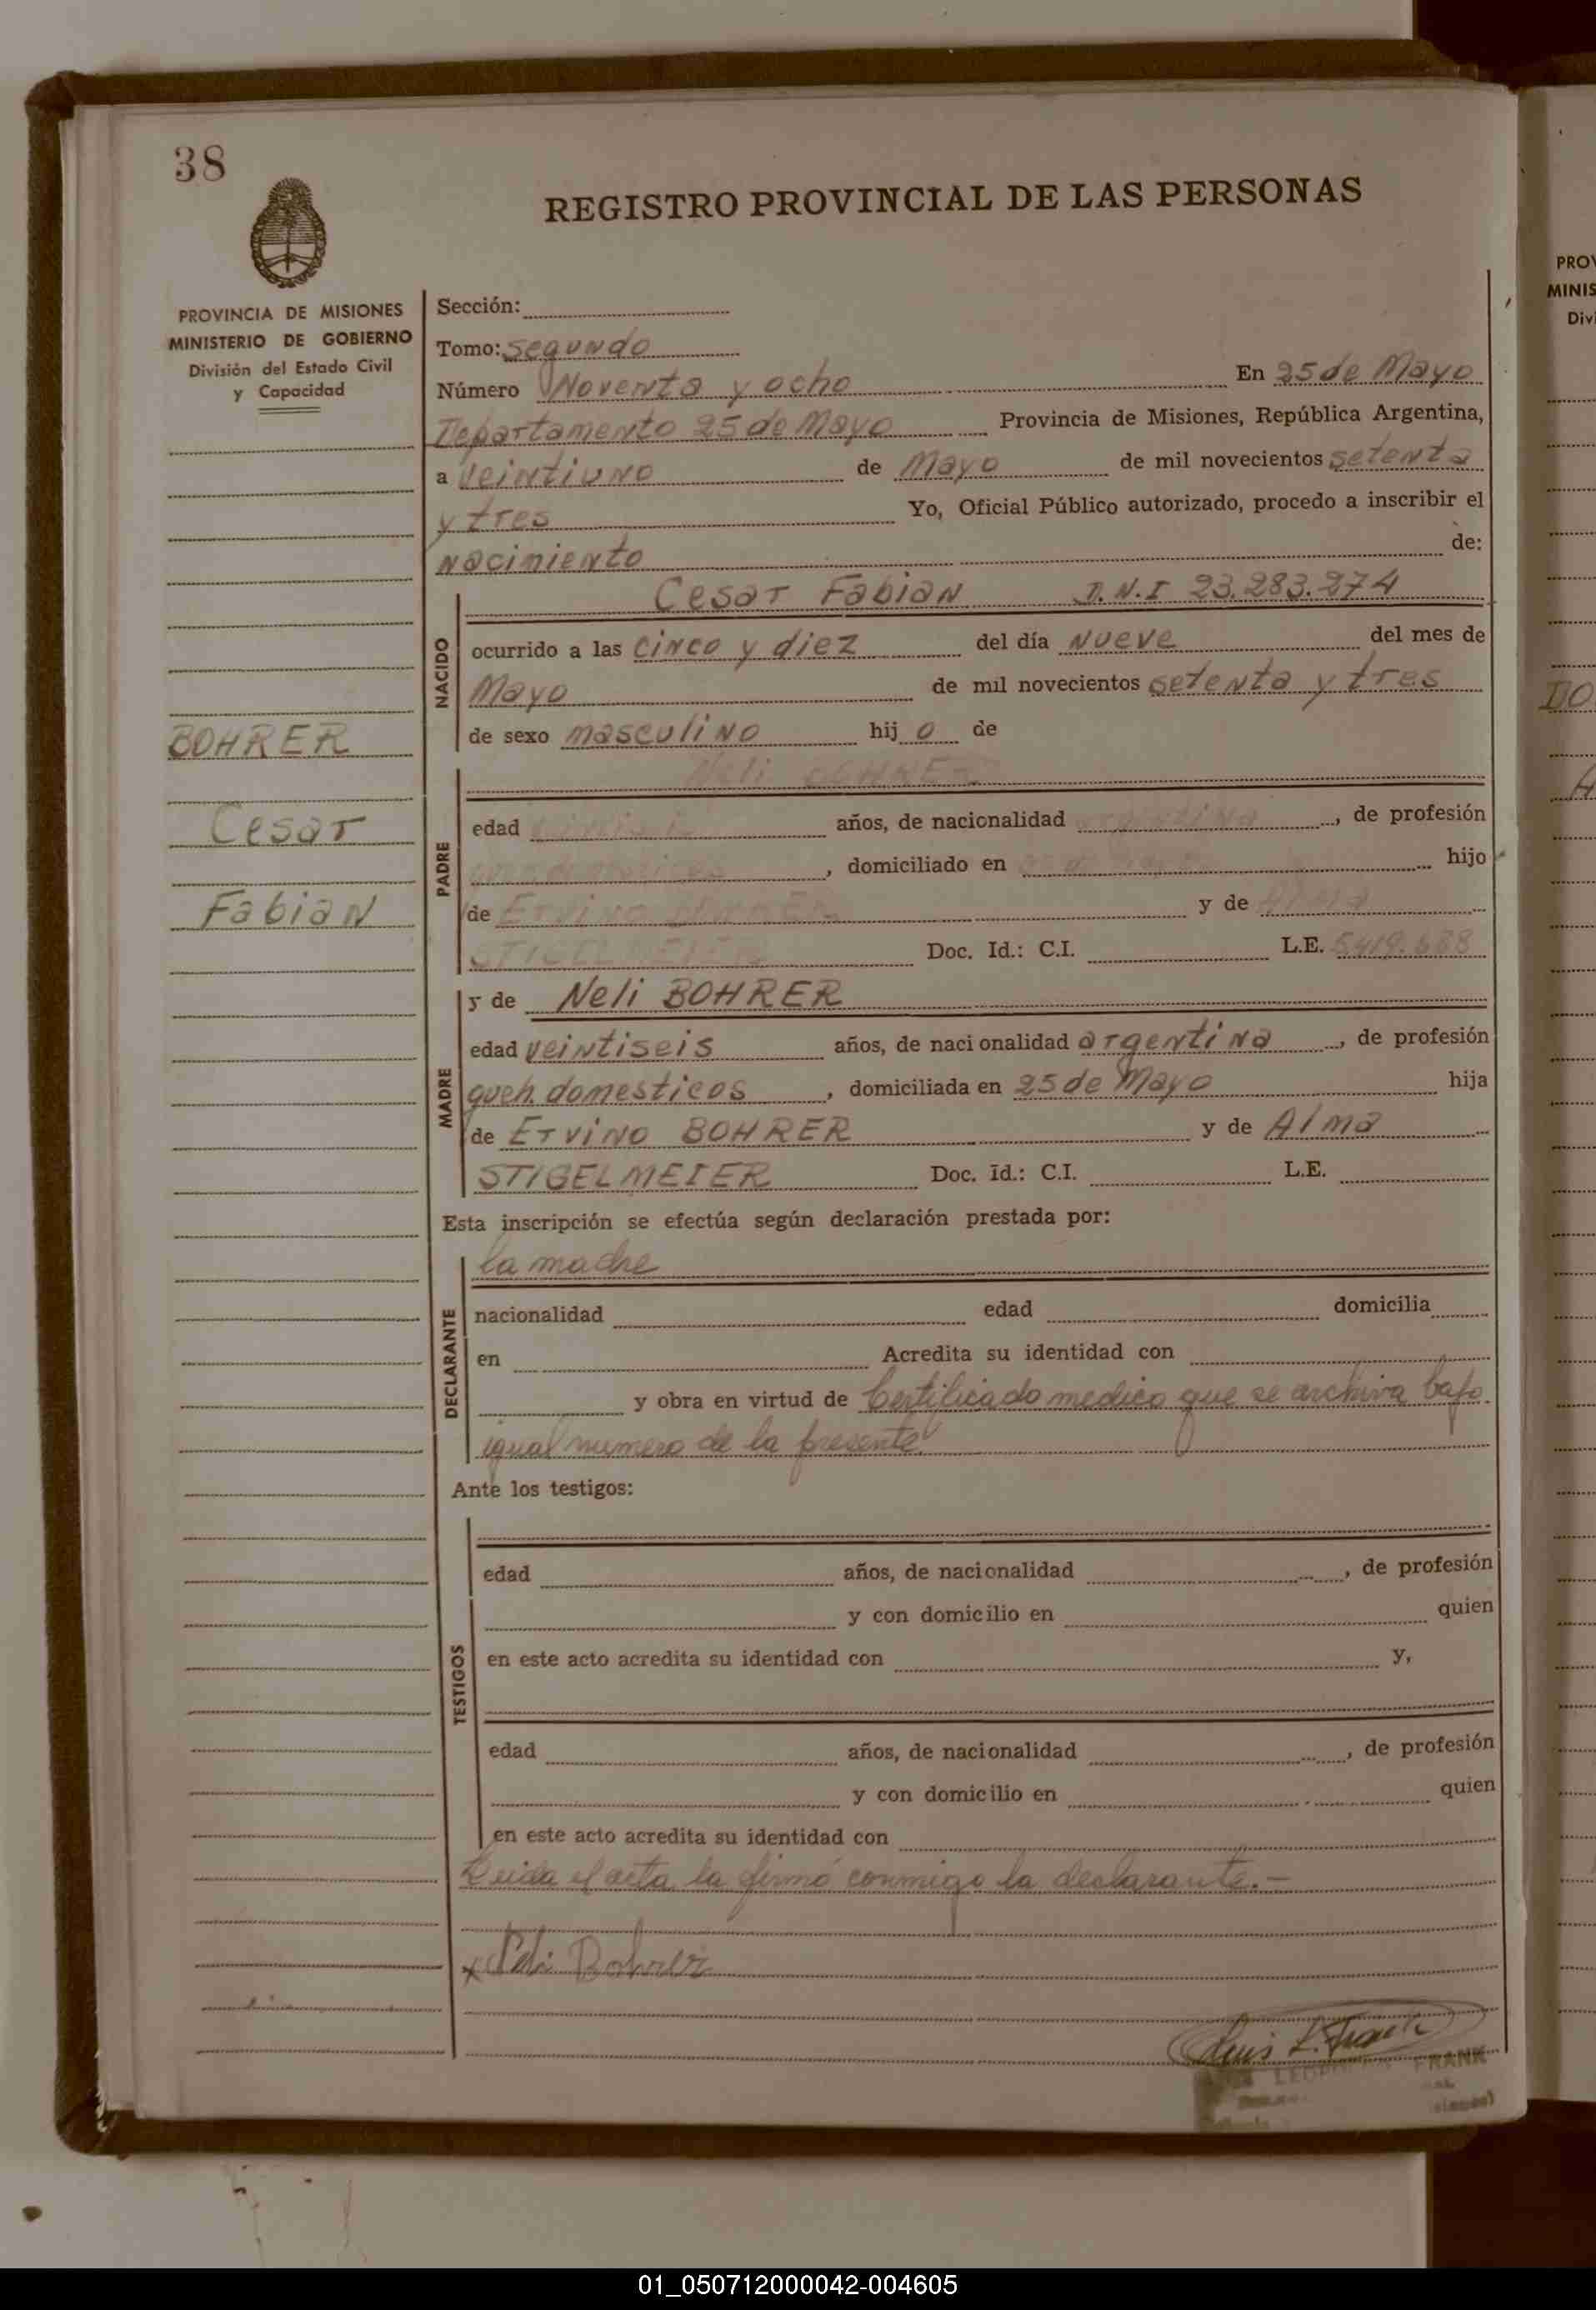 38
REGISTRO PROVINCIAL DE LAS PERSONAS
PROVINCIA DE MISIONES
MINISTERIO DE GOBIERNO
División del Estado Civil
y Capacidad
BOHRER
Cesar
Fabian
Sección:
Tomo: segundo
Número Noventa y ocho En 25 de Mayo
Departamento 25 de Mayo Provincia de Misiones, República Argentina,
a Veintiuno de Mayo de mil novecientos setenta
y tres Yo, Oficial Público autorizado, procedo a inscribir el
nacimiento de:
NACIDO
Cesar Fabian D.N.I 23.283.274
ocurrido a las cinco y diez del día nueve del mes de
Mayo de mil novecientos setenta y tres
de sexo masculino hijo de
PADRE
Neli BOHRER
edad años, de nacionalidad argentina, de profesión
, domiciliado en hijo
de Ervino BOHRER y de Alma
STIGELMEIER Doc. Id.: C.I. L.E. 5419.688
MADRE
y de Neli BOHRER
edad veintiseis años, de nacionalidad argentina, de profesión
queh. domesticos, domiciliada en 25 de Mayo hija
de Ervino BOHRER y de Alma
STIGELMEIER Doc. Id.: C.I. L.E.
Esta inscripción se efectúa según declaración prestada por:
DECLARANTE
la madre
nacionalidad edad domicilia
en Acredita su identidad con
y obra en virtud de Certificado medico que se archiva bajo
igual numero de la presente
Ante los testigos:
TESTIGOS
edad años, de nacionalidad , de profesión
y con domicilio en quien
en este acto acredita su identidad con y,
edad años, de nacionalidad , de profesión
y con domicilio en quien
en este acto acredita su identidad con
Leida el acta, la firmó conmigo la declarante.-
x Neli Bohrer
Luis L. Frank
FRANK
PROV
MINIS
Divi
DO
01_050712000042-004605